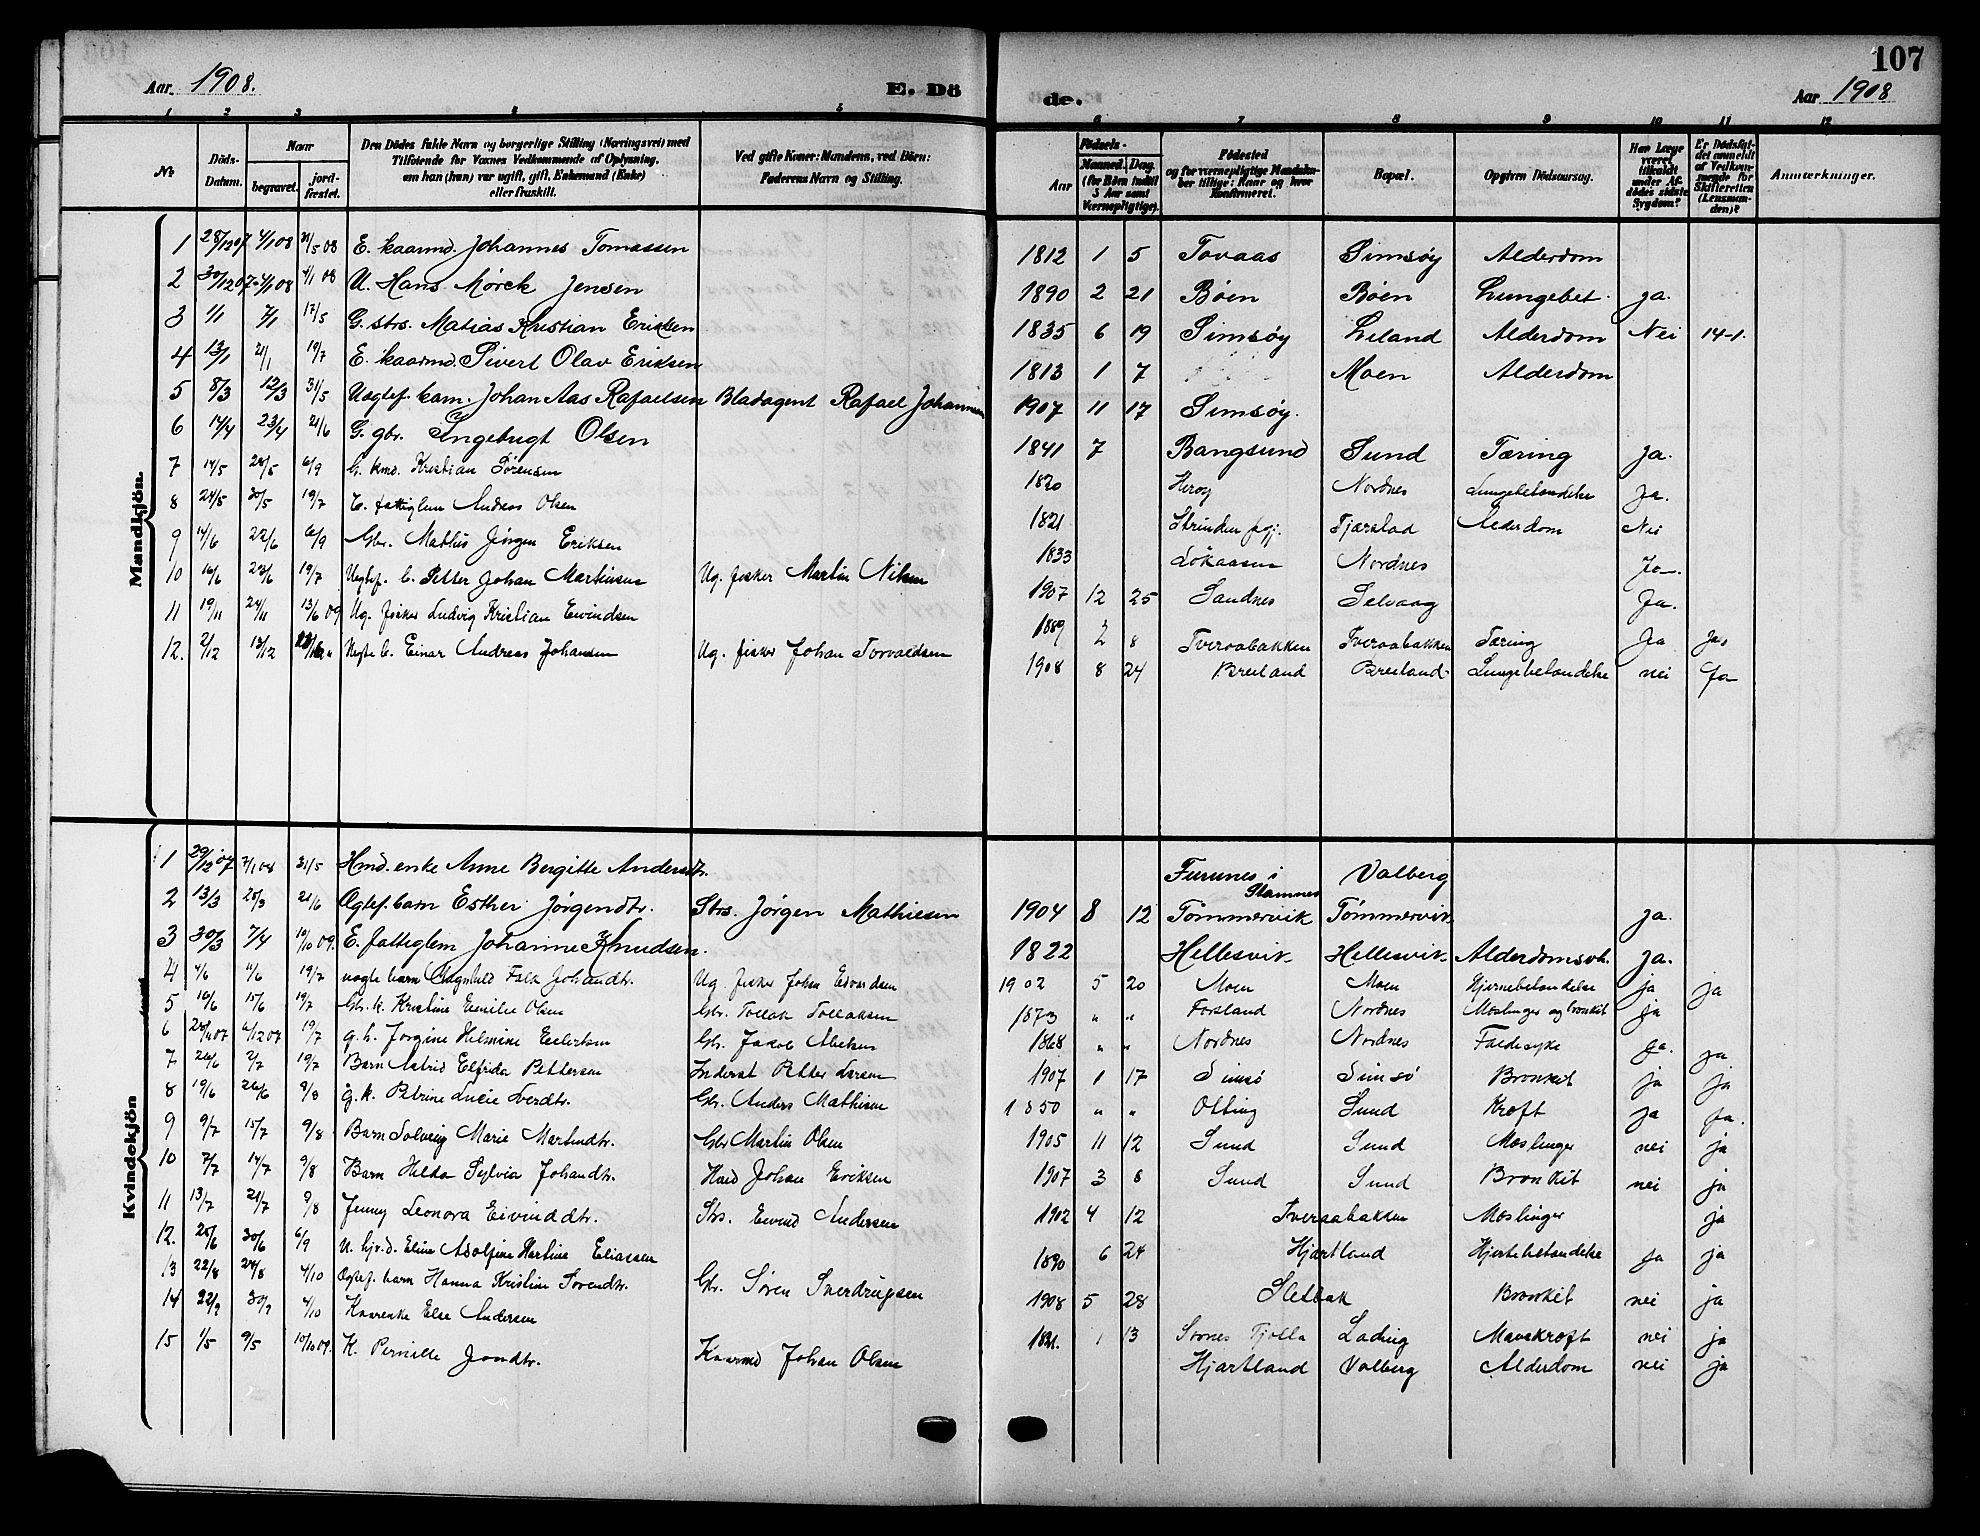 107
Aar 1908.
E. Dö
de.
Aar 1908
1 2 3 4 5 6 7 8 9 10 11 12
No
Döds-Datum.
Naar
begravet.
jordfæstet.
Den Dödes fulde Navn og borgerlige Stilling (Næringsvei) med Tilföiende for Voxnes Vedkommende af Oplysning, om han (hun) var ugift, gift, Enkemand (Enke) eller fraskilt.
Ved gifte Koner: Mandens, ved Börn: Faderens Navn og Stilling.
Födsels-
Aar
Maaned. Dag.
(for Börn indtil 5 Aar samt Værnepligtige).
Födested og for værnepligtige Mandskaber tillige: Naar og hvor konfirmeret.
Bopæl.
Opgiven Dödsaarsag.
Har Læge været tilkaldt under Afdödes sidste Sygdom?
Er Dödsfaldet anmeldt af Vedkommende for Skifteretten (Lensmanden)?
Anmærkninger.
Mandkjön.
1 28/12 07 4/1 08 31/5 08 E. kaarmd. Johannes Tomassen 1812 1 5 Tovaas Simsøy Alderdom
2 30/12 07 4/1 08 4/1 08 U. Hans Mørck Jensen 1890 2 21 Bøen Bøen Lungebet. ja.
3 1/1 7/1 17/5 G. strs. Matias Kristian Eriksen 1835 6 19 Simsøy Leland Alderdom Nei 14-1.
4 13/1 21/1 19/7 E. kaarmd. Sivert Olav Eriksen 1813 1 7 Moen Alderdom
5 8/3 12/3 31/5 Uægtef. barn. Johan Aas Rafaelsen Bladagent Rafael Johannsen 1907 11 17 Simsøy.
6 14/4 23/4 21/6 G. gbr. Ingebrigt Olsen 1841 7 Bangsund Sund Tæring ja.
7 14/5 28/5 6/9 G. kmd. Kristian Sørensen 1820 Herøy Nordnes Lungebetændelse Ja.
8 24/5 30/5 19/7 E. fattiglem Andreas Olsen 1821 Strinden pgj. Fjærstad Alderdom Nei
9 14/6 22/6 6/9 Gbr. Mathis Jørgen Eriksen 1833 Lökaasen Nordnes Ja.
10 16/6 23/6 19/7 Uægtef. b. Petter Johan Martinsen Ug. fisker Martin Nilsen 1907 12 25 Sandnes Selvaag Ja.
11 19/11 24/11 13/6 09 Ug. fisker Ludvig Kristian Eivindsen 1889 2 8 Tveraabakken Tveraabakken Tæring Ja ja,
12. 2/12 13/12 Uegte b. Einar Andreas Johansen Ug. fisker Johan Torvaldsen 1908 8 24 Breiland Breiland Lungebetændelse nei Ja
Kvindekjön
1 29/12 07 7/1 08 31/5 Hmd. enke Anne Bergitte Andersdtr. Furunes i Stamnes Valberg
2 13/3 25/3 21/6 Ægtef. barn Esther Jørgendtr. Strs. Jørgen Mathiesen 1904 8 12 Tömmervik Tömmervik ja.
3 30/3 7/4 10/10 09. E. fattiglem Johanne Knudsen. 1822 Hellesvik Hellesvik Alderdomssv. ja.
4 4/6 11/6 19/7 uægte barn Magnhild Falk Johandtr. Ug. fisker Johan Edvardsen 1902 5 20 Moen Moen Hjernebetændelse ja ja
5 10/6 15/6 19/7 Gbr. k. Kristine Emilie Olsen Gbr. Tollak Tollaksen 1873 " " Forsland Nordnes Mæslinger og bronkit ja
6 6/12 07 19/7 g. k. Jorgine Helmine Eilertsen Gbr. Jakob 1868 " " Nordnes Nordnes Faldesyke Ja. ja
7 26/6 2/7 19/7 Barn Astrid Elfrida Pettersen Inderst Petter Larsen 1907 1 17 Simsø Simsø Bronkit ja ja
8 19/6 26/6 9/8 g. k. Petrine Lucie Sverdtr. Gbr. Anders Mathisen 1850 " " Otting Sund Kræft ja ja.
9 9/7 15/7 9/8 Barn Solveig Marie Martindtr. Gbr Martin Olsen 1905 11 12 Sund Sund Mæslinger nei ja
10 7/7 14/7 9/8 Barn Hilda Sylvia Johandtr. Hmd Johan Eriksen 1907 3 8 Sund Sund Bronkit nei ja
11 13/7 21/7 9/8 Jenny Leonora Eivinddtr. Strs. Eivind Andersen 1902 4 12 Tveraabakken Mæslinger ja
12. 25/6 30/6 6/9 U. hjv. d. Eline Adolfine Martine Eliassen 1890 6 24 Hjartland Hjertebetændelse Ja ja
13 22/8 29/8 4/10 Ægtef. barn Hanna Kristine Sørendtr. Gbr. Søren Sverdrupsen 1908 5 28 Sletbak Bronkit nei ja
14 22/9 30/9 4/10 Kaarenke Else Andersen 1821. 1 13 Sørnes Tjøtta Lading Mavekræft nei ja
15 1/5 9/5 10/10 09. K. Pernille Jondtr. Kaarmd Johan Olsen Hjartland Valberg Alderdom nei ja